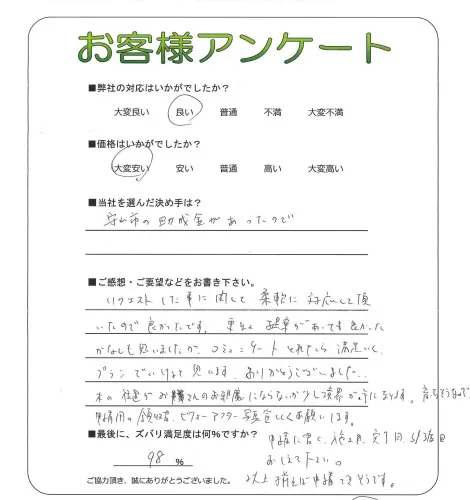 お客様アンケート
■弊社の対応はいかがでしたか?
大変良い 良い 普通 不満 大変不満
■価格はいかがでしたか?
大変安い 安い 普通 高い 大変高い
■当社を選んだ決め手は?
守山市の助成金があったので
■ご感想・ご要望などをお書き下さい。
リクエストした事に関して柔軟に対応して頂
いたので良かったです。更に提案があっても良かった
かなとも思いましたが、コミュニケートとれたら満足いく
プランでいけると思います。ありがとうございました。
木の往診がお隣さんのお邪魔にならないか少し境界が気になります。
申請用の領収書、ビフォーアフター写真宜しくお願いします。
■最後に、ズバリ満足度は何%ですか?
98 %
申請に書く、施工月、完了日
おしえて下さい。
以上揃えば申請できそうです。
ご協力頂き、誠にありがとうございました。